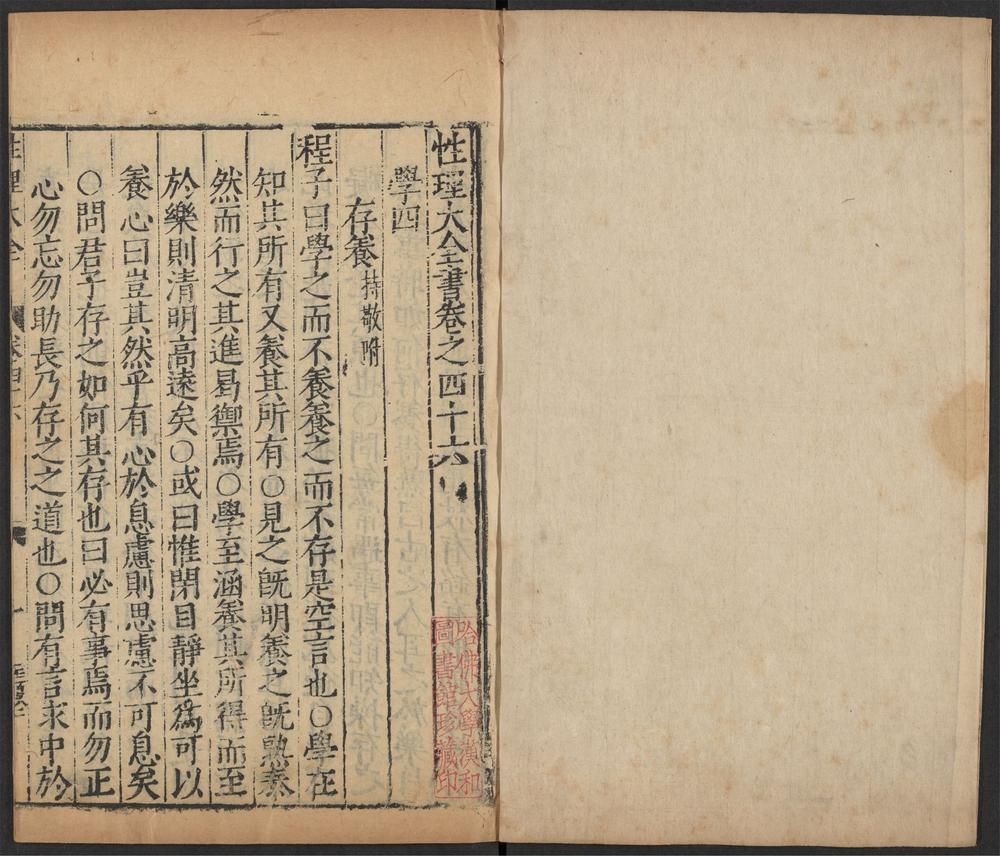 性理大全書卷之四十六
學四
存養 持敬附
程子曰學之而不養養之而不存是空言也○學在
知其所有又養其所有○見之旣明養之旣熟泰
然而行之其進曷禦焉○學至涵養其所得而至
於樂則清明高遠矣○或曰惟閉目靜坐爲可以
養心曰豈其然乎有心於息慮則思慮不可息矣
○問君子存之如何其存也曰必有事焉而勿正
心勿忘勿助長乃存之之道也○問有言求中於
性理大全
卷四十六
一
哈佛大學漢和
圖書館珍藏印